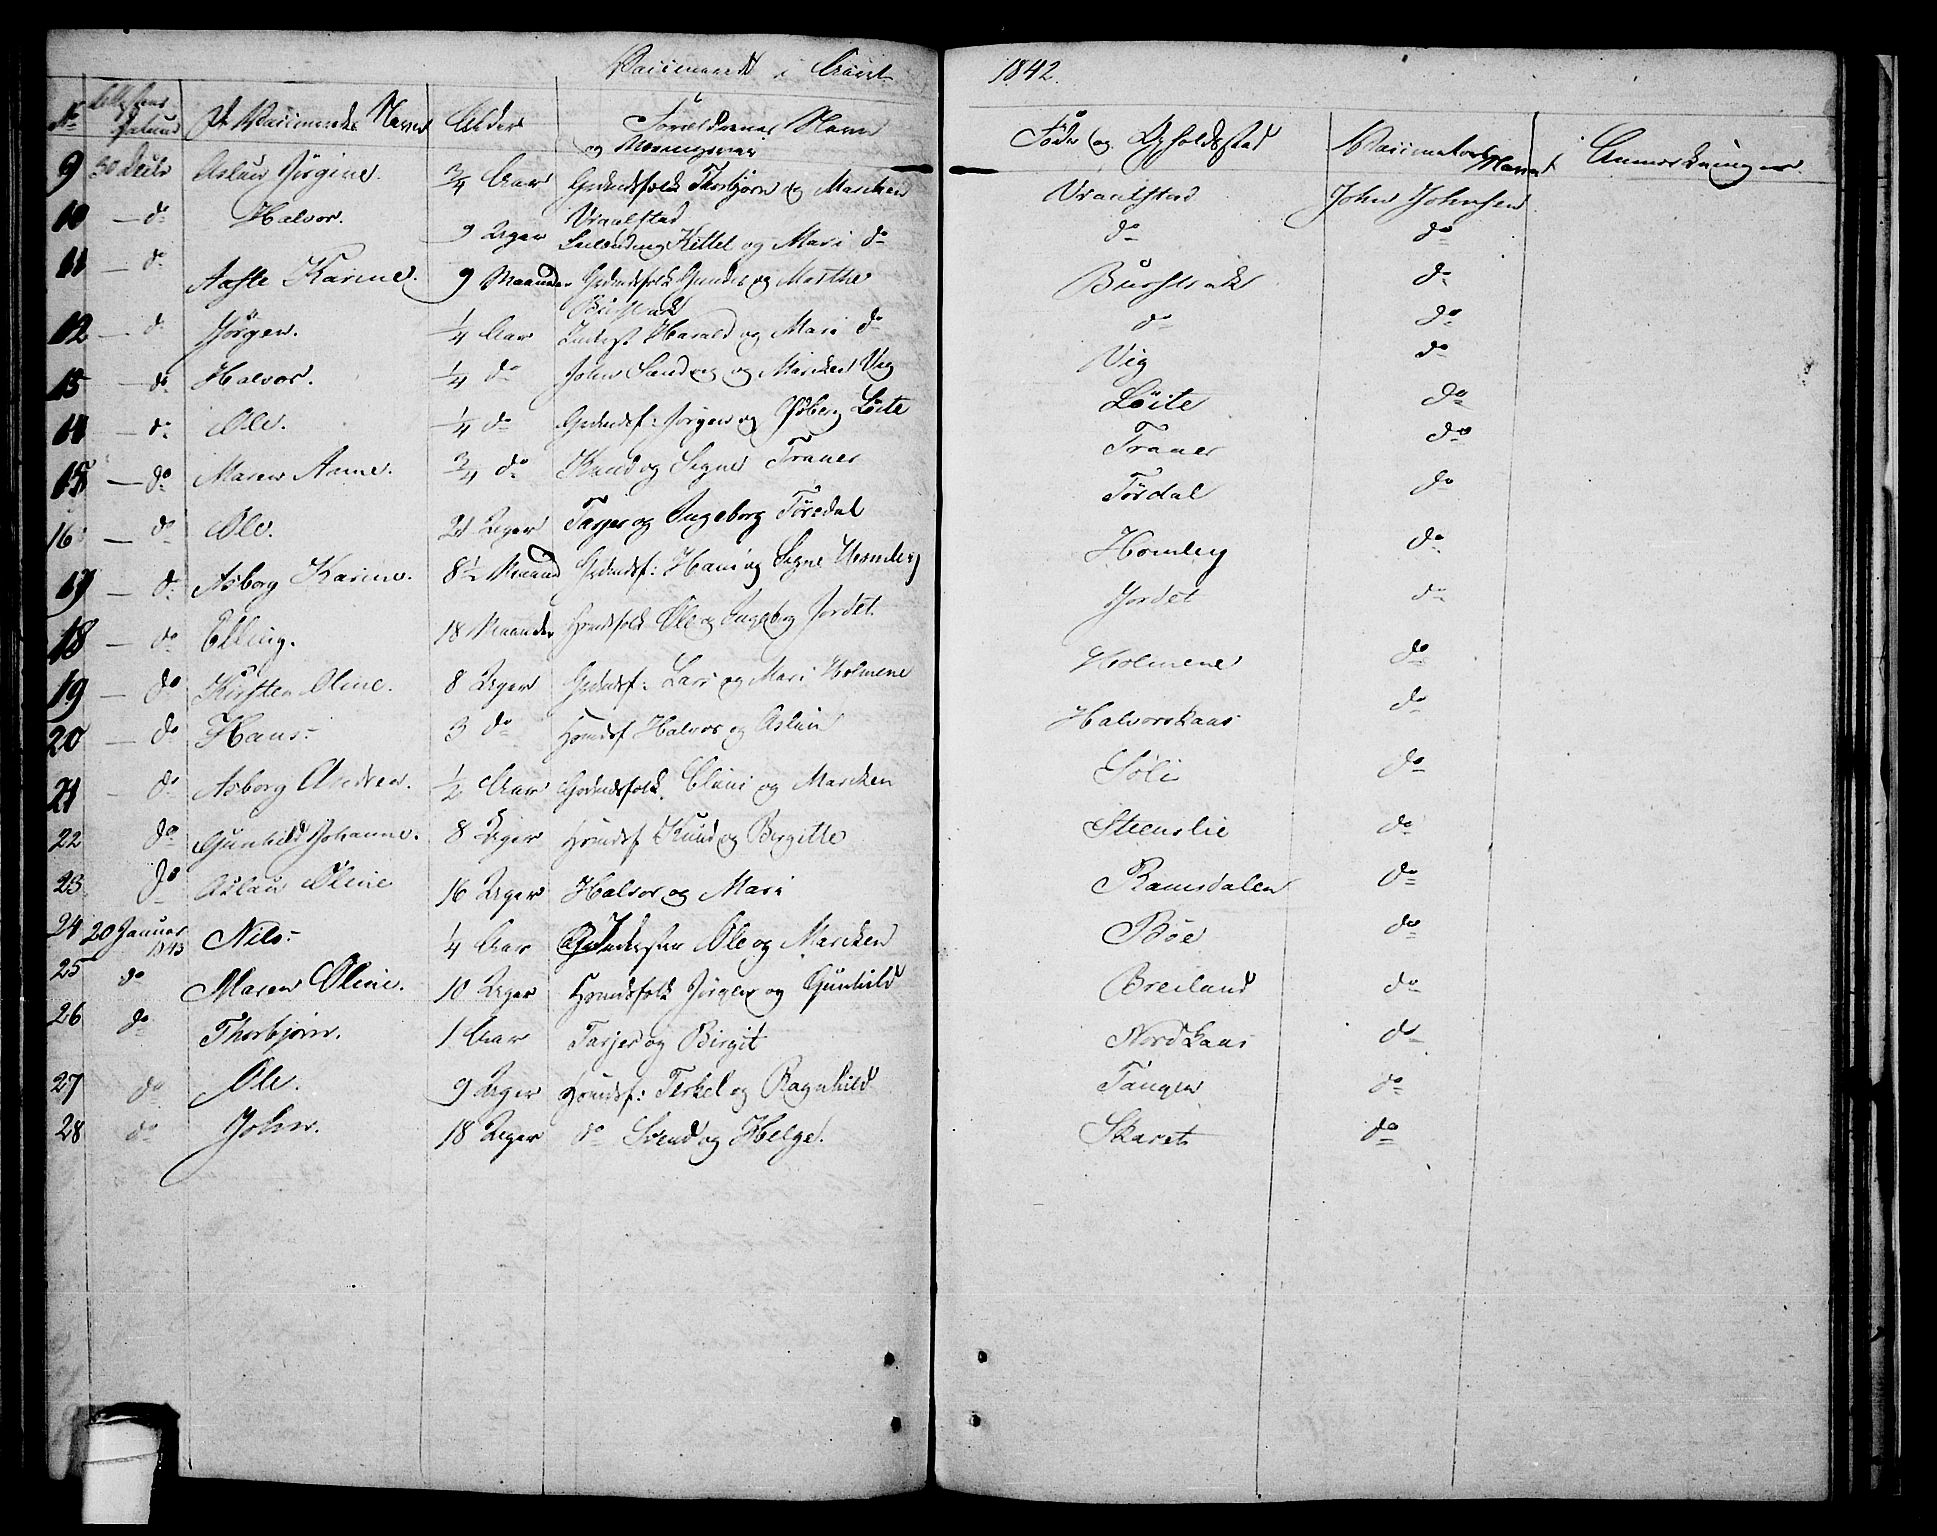 Vaccinerede i Aaret 1842.
No Attestens Datum De Vaccineredes Navne Alder Forældrenes Navne og Næringsvei Føde og Opholdsstad Vaccinateurs Navn Anmærkninger
9 30 Decbr Aslau Jørgine. 3/4 Aar Grdmdsfolk Thorbjørn og Marichen Vraalstad Vraalstad John Johnsen
10 — do Halvor. 9 Uger Kittel og Mari do do do
11 — do Aaste Karine. 9 Maaneder Grdmdsfolk Gunder og Marthe Burstrak do
12 — do Jørgen. 1/4 Aar Inderst Harald og Mari do do do
13 — do Halvor. 1/4 do John Sandvig og Marichen Vig Vig do
14 — do Ole. 1/4 do Grdmdsf: Jørgen og Løite Løite do
15 — do Maren Anne. 3/4 do Knud og Signe Traner Traner do
16 — do Ole. 21 Uger Tarjer og Ingeborg Tørdal Tørdal do
17 — do Asborg Karine. 8 1/2 Maaned Grdmdsf: Hans og Signe Homley Homley do
18 — do Elling. 18 Maaneder Hsmdsfolk Ole og Ingeborg Jordet. Jordet do
19 — do Kirsten Oline. 8 Uger Grdmdsf: Lars og Mari Holmene Holmene do
20 — do Hans 3 do Hsmdsf Halvor og Aslau Halvorskaas do
21 — do Asborg Andrea. 1/2 Aar Grdmdsfolk. Claus og Marichen Søli do
22 do Gunhild Johanne. 8 Uger Hsmdsf Knud og Birgitte Steenslie do
23 do Aslau Oline 16 Uger Halvor og Mari Ramsdalen do
24 20 Januar 1843 Nils 1/4 Aar Indersten Ole og Marichen Bøe do
25 do Maren Oline. 10 Uger Hsmdsfolk Jørgen og Gunhild Breiland do
26 do Thorbjørn. 1 Aar Tarjer og Birgit Nordkaas do
27 do Ole. 9 Uger Hsmdsf: Terkel og Ragnhild Tangen do
28 do John. 18 Uger do Svend og Helge. Skaret do